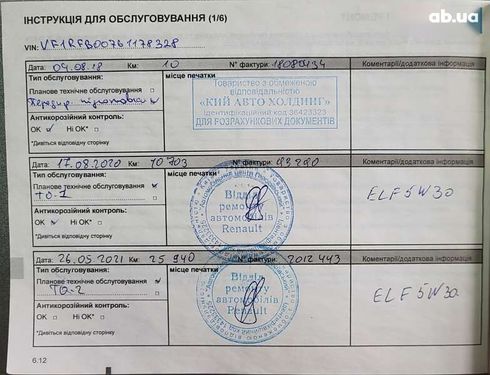 ІНСТРУКЦІЯ ДЛЯ ОБСЛУГОВУВАННЯ (1/6)
ab.ua
VIN: VF1RFB00761178328
Дата: 04.08.18 Км: 10 N° фактури: 18080434 Коментарії/додаткова інформація
Тип обслуговування:
місце печатки
Планове технічне обслуговування
Антикорозійний контроль:
OK Ні OK*
*Дивіться відповідну сторінку
Товариство з обмеженою
відповідальністю
«КИЙ АВТО ХОЛДИНГ»
Ідентифікаційний код 36423323
ДЛЯ РОЗРАХУНКОВИХ ДОКУМЕНТІВ
Дата: 17.08.2020 Км: 10 703 N° фактури: Коментарії/додаткова інформація
Тип обслуговування:
місце печатки
Планове технічне обслуговування
ТО-1
Антикорозійний контроль:
OK Ні OK*
*Дивіться відповідну сторінку
Відділ
ремонту
автомобілів
Renault
ELF 5W30
Дата: 26.05.2021 Км: 25 940 N° фактури: 2012443 Коментарії/додаткова інформація
Тип обслуговування:
місце печатки
Планове технічне обслуговування
ТО-2
Антикорозійний контроль:
OK Ні OK*
*Дивіться відповідну сторінку
Відділ
ремонту
автомобілів
Renault
ELF 5W30
6.12